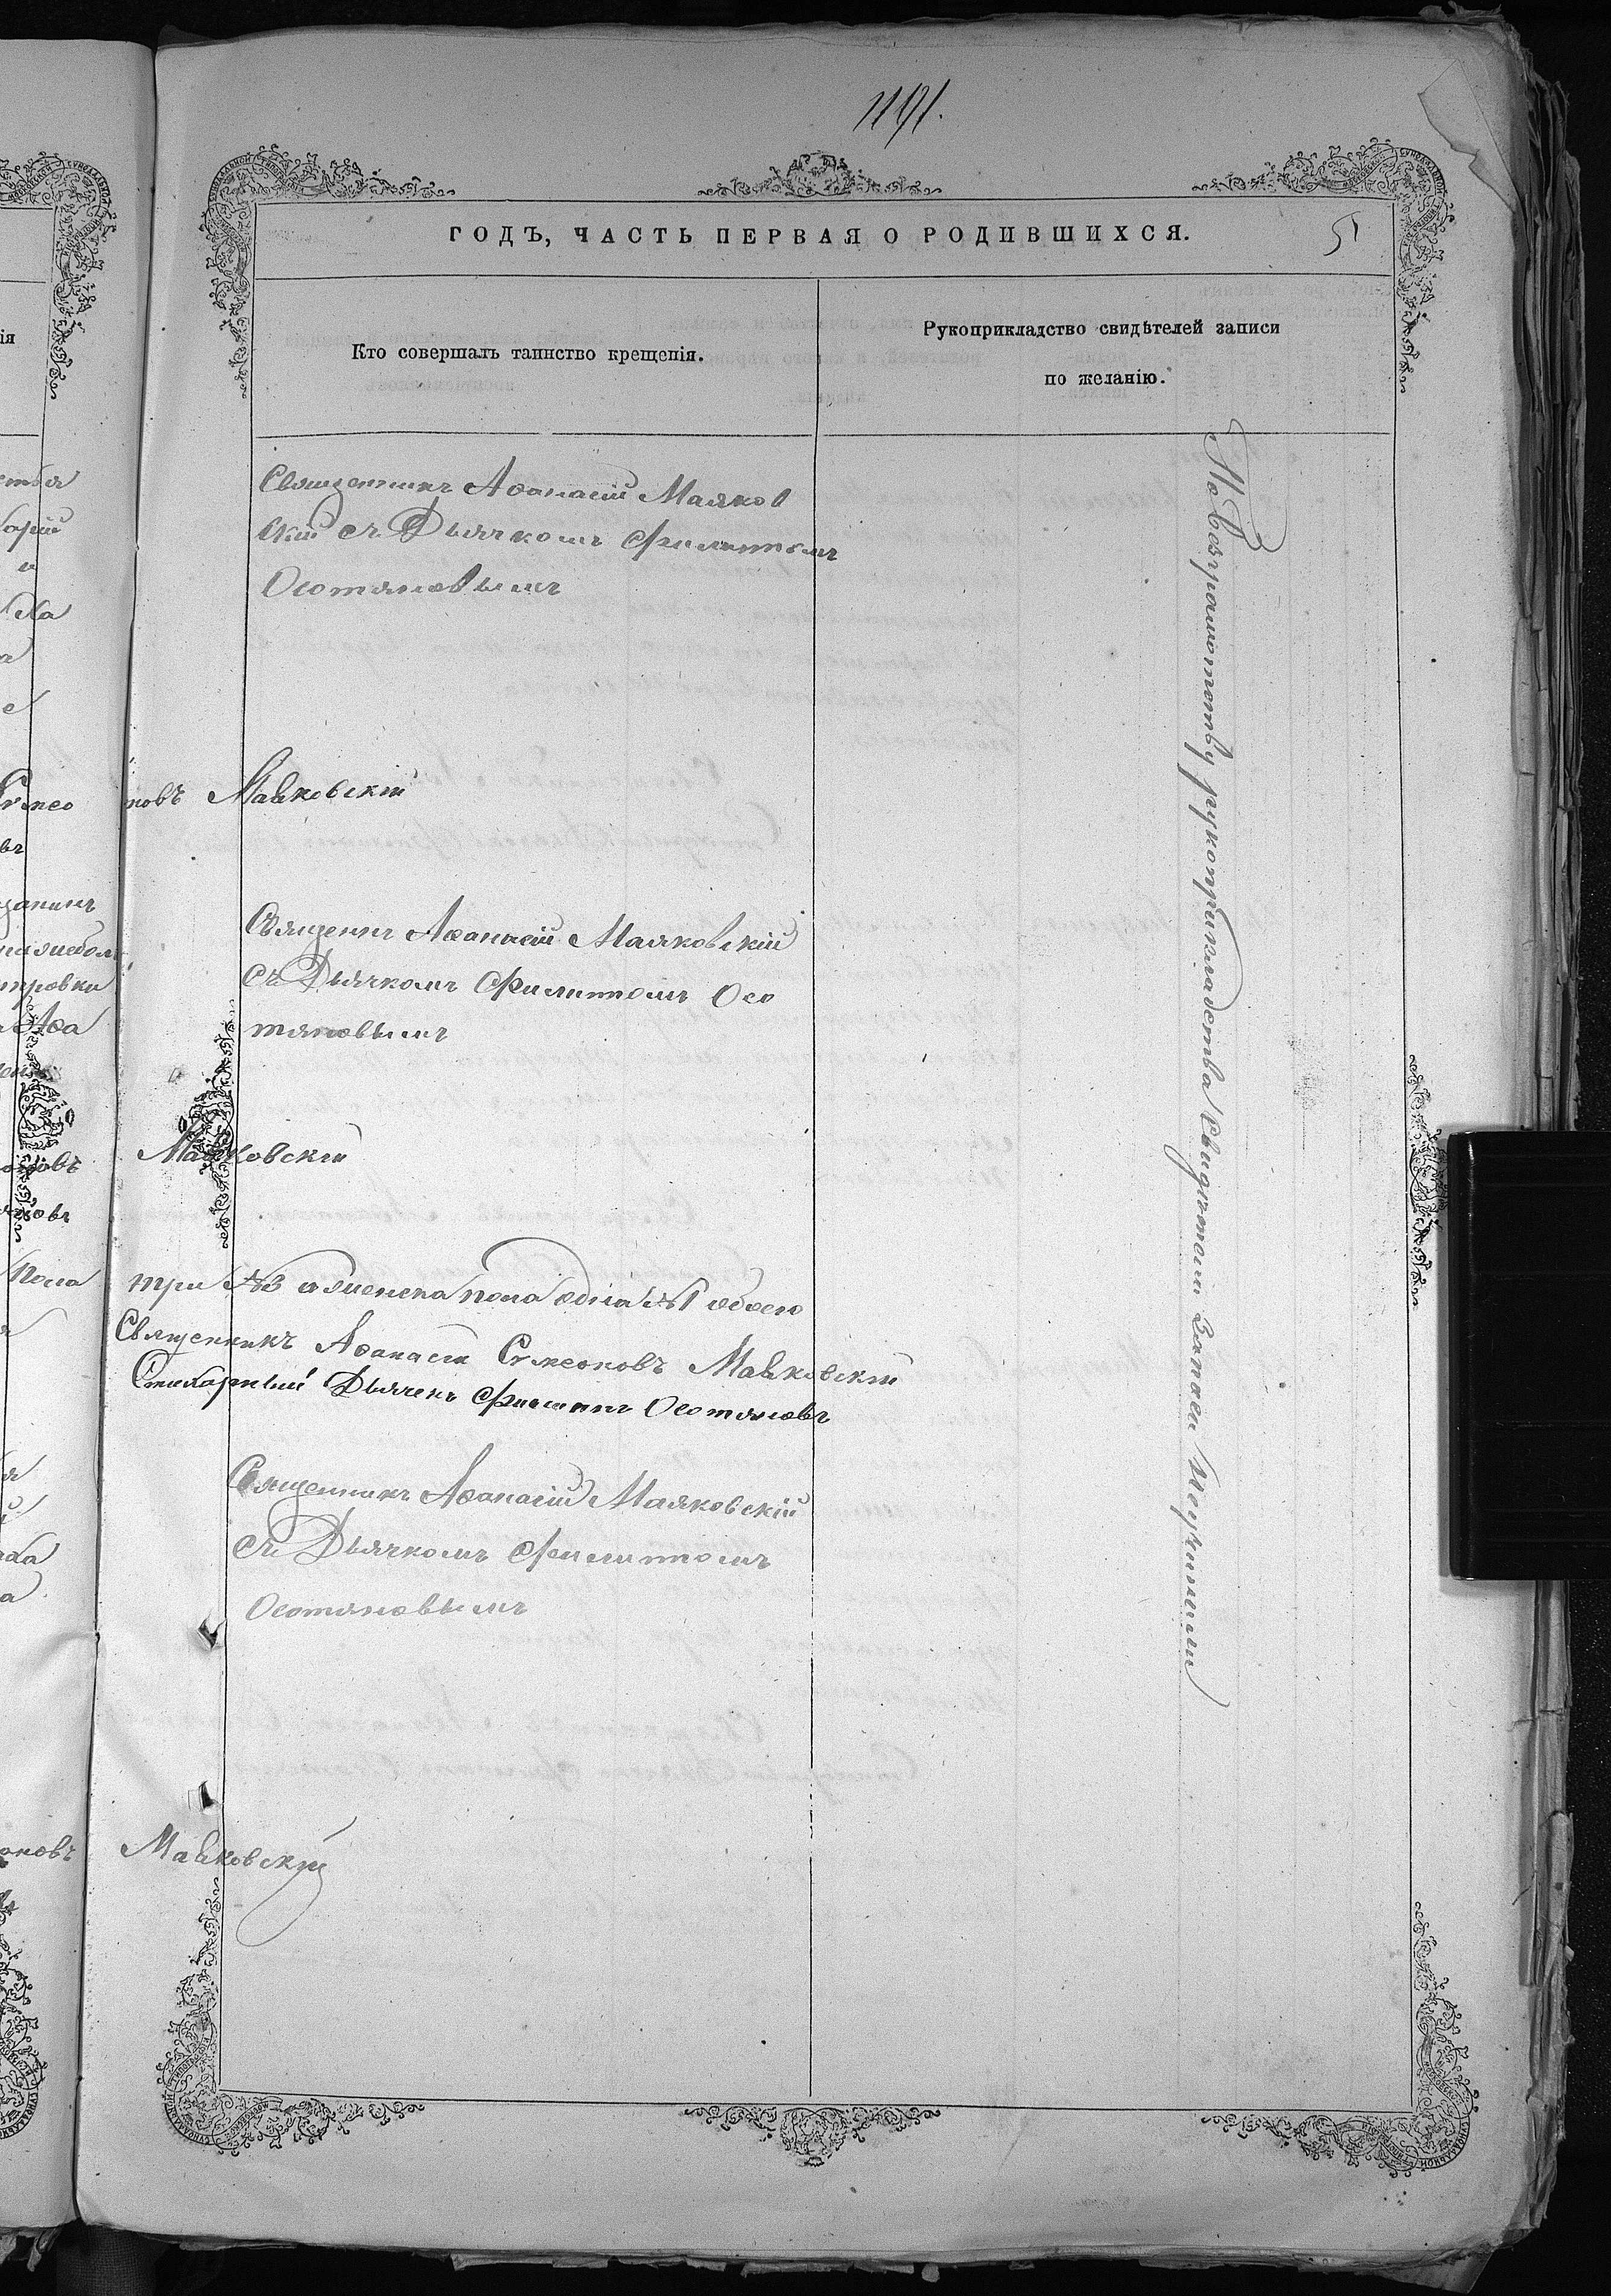 1191.
ГОДЪ, ЧАСТЬ ПЕРВАЯ О РОДИВШИХСЯ.
51
Кто совершалъ таинство крещенія.
Рукоприкладство свидѣтелей записи
по желанію.
Священникъ Аѳанасій Маяков
скій съ Дьячкомъ Филиппомъ
Осотяновымъ
новъ Маяковскій
Священн Аѳанасій Маяковскій
съ Дьячкомъ Филиппомъ Осо
тяновымъ
Маяковскій
три №3 а женска пола одна №1 обоего
Священникъ Аѳанасій Симеоновъ Маяковскій
Стихарный Дьячекъ Филиппъ Осотяновъ
Священникъ Аѳанасій Маяковскій
съ Дьячкомъ Филиппомъ
Осотяновымъ
Маяковскій
По безграмотству рукоприкладства свидѣтелей записи неучинили